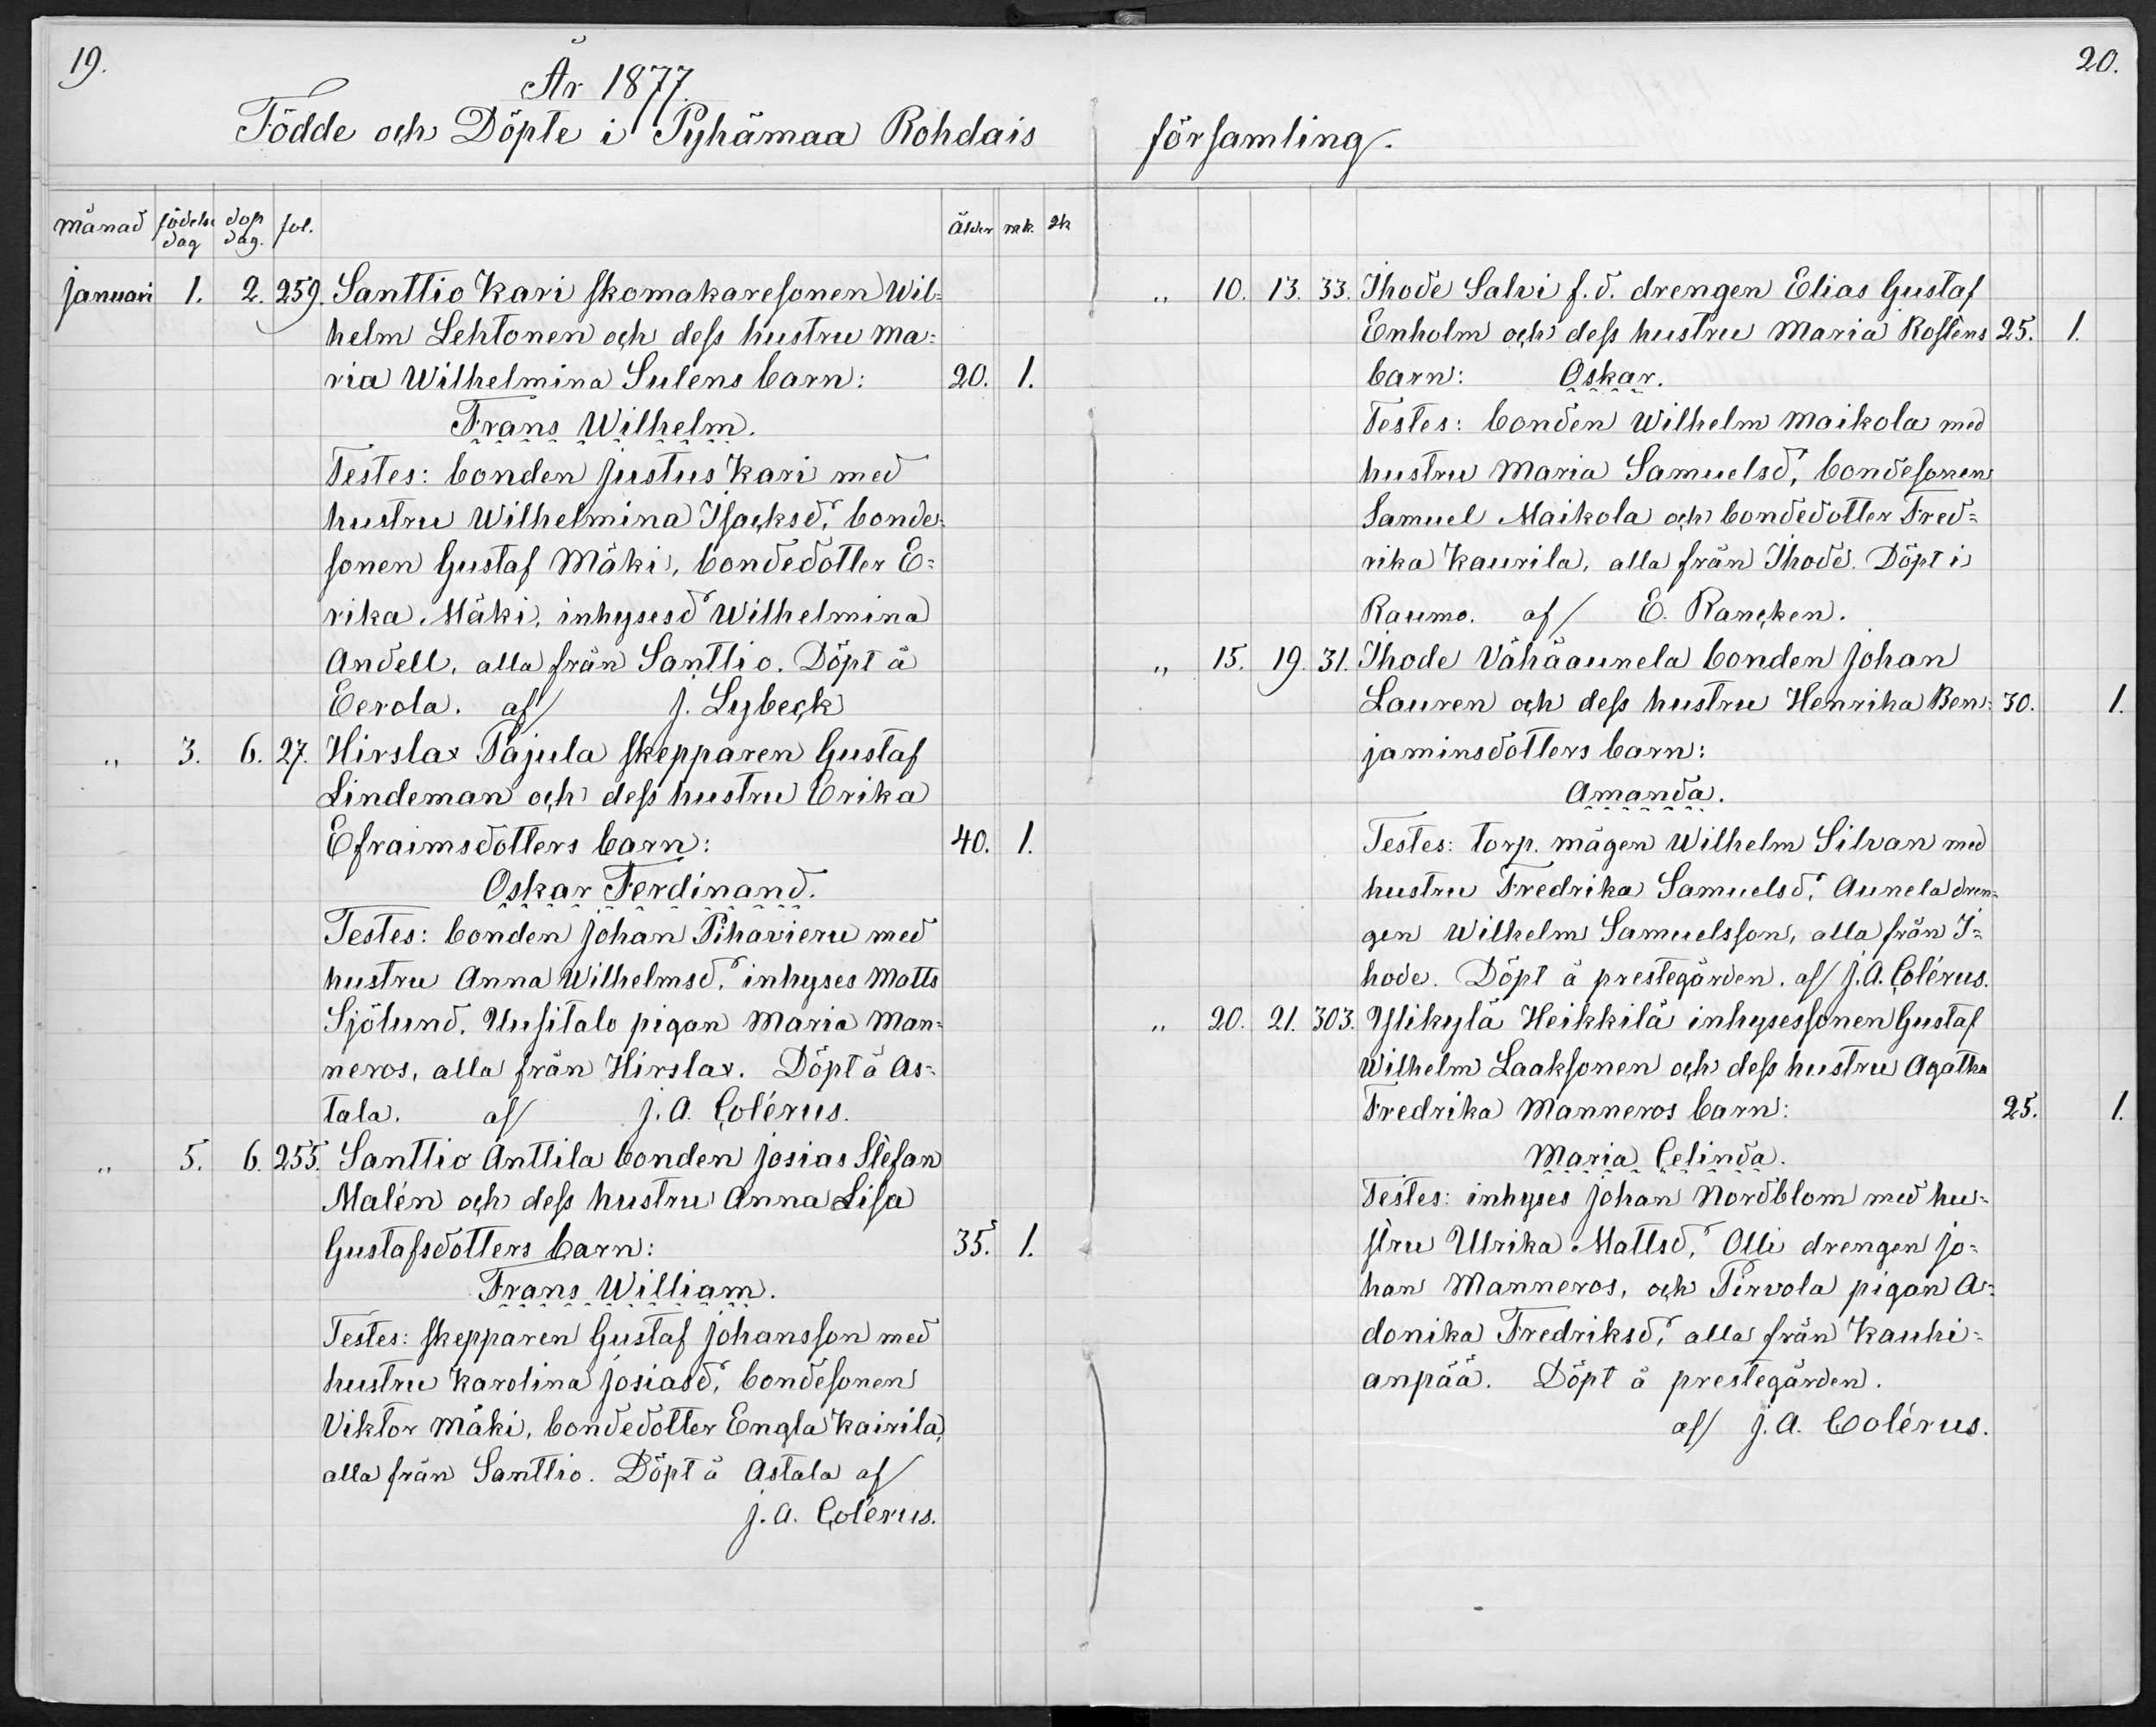 19.
År 1877.
Födde och Döpte i Pyhämaa Rohdais
månad födelse dag dop dag. fol. Ålder mk. qk
januari 1. 2. 259. Santtio Kari skomakaresonen Wil=
helm Lehtonen och dess hustru Ma=
ria Wilhelmina Sulens barn: 20. 1.
Frans Wilhelm.
Testes: bonden Justus Kari med
hustru Wilhelmina Isacksdr, bonde=
sonen Gustaf Mäki, bondedotter E=
rika Mäki, inhysesdr Wilhelmina
Andell, alla från Santtio. Döpt å
Eerola. af/ J. Lybeck
" 3. 6. 27. Hirslax Pajula skepparen Gustaf
Lindeman och dess hustru Erika
Efraimsdotters barn: 40. 1.
Oskar Ferdinand.
Testes: bonden Johan Pihavieru med
hustru Anna Wilhelmsdr, inhyses Matts
Sjölund, Uusitalo pigan Maria Man=
neros, alla från Hirslax. Döpt å As=
tala. af/ J. A. Colérus.
" 5. 6. 255. Santtio Anttila bonden Josias Stefan
Malén och dess hustru Anna Lisa
Gustafsdotters barn: 35. 1.
Frans William.
Testes: skepparen Gustaf Johansson med
hustru Karolina Josiasdr, bondesonen
Viktor Mäki, bondedotter Engla Kairila,
alla från Santtio. Döpt å Astala af/
J. A. Colérus.
20.
församling.
" 10. 13. 33. Ihode Salvi f. d. drengen Elias Gustaf
Enholm och dess hustru Maria Rostens 25. 1.
barn: Oskar.
Testes: bonden Wilhelm Maikola med
hustru Maria Samuelsdr, bondesonen
Samuel Maikola och bondedotter Fred=
rika Kaurila, alla från Ihode. Döpt i
Raumo. af/ E. Rancken.
" 15. 19. 31. Ihode Vähäaunela bonden Johan
Lauren och dess hustru Henrika Ben= 30. 1.
jaminsdotters barn:
Amanda.
Testes: torp. mågen Wilhelm Silvan med
hustru Fredrika Samuelsdr, Aunela dren=
gen Wilhelm Samuelsson, alla från I=
hode. Döpt å prestegården. af/ J. A. Colérus.
" 20. 21. 303. Ylikylä Heikkilä inhysessonen Gustaf
Wilhelm Laaksonen och dess hustru Agatha
Fredrika Manneros barn: 25. 1.
Maria Celinda.
Testes: inhyses Johan Nordblom med hu=
stru Ulrika Mattsdr, Olli drengen Jo=
han Manneros, och Pirvola pigan A=
donika Fredriksdr, alla från Kauhi=
anpää. Döpt å prestegården.
af/ J. A. Colérus.